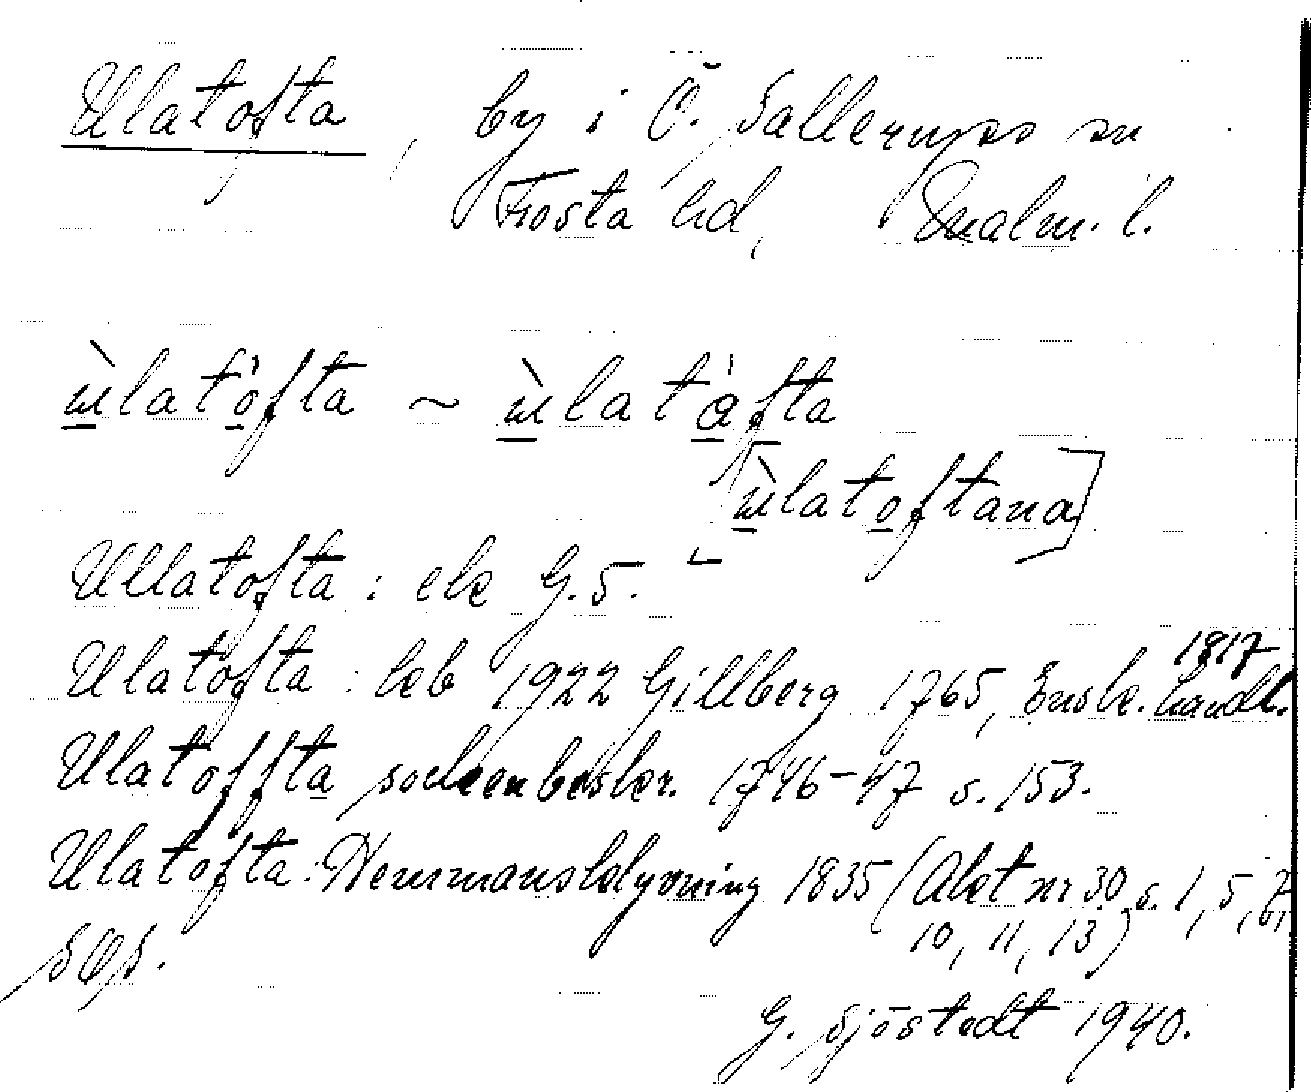 Ulatofta, by i Ö. Sallerups sn
Frosta hd, Malm. l.
ùlatòfta ~ ùlatåfta
[ùlatoftana]
Ullatofta : ek G.5.
Ulatofta : kb 1922 Gillberg 1765, Ensk. handl. 1817
Ulatoffta sockenbeskr. 1746-47 s. 153.
Ulatofta : Hemmansklyvning 1835 (Akt nr 30 s. 1, 5, 7,
10, 11, 13)
G. Sjöstedt 1940.